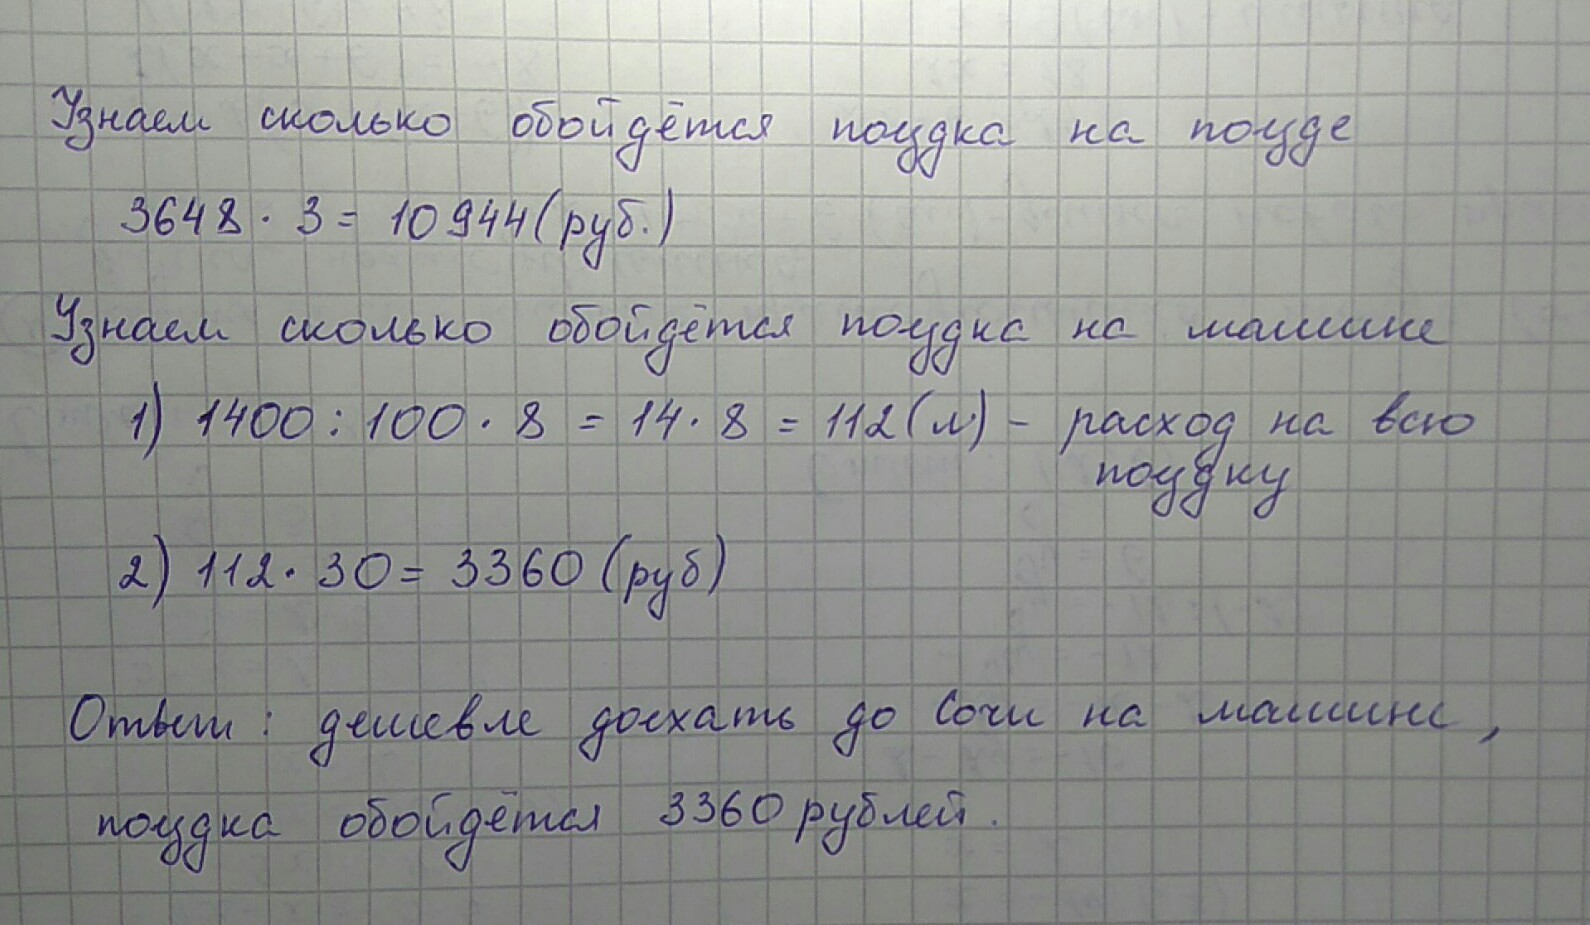 Узнаем сколько обойдётся поездка на поезде
3648 · 3 = 10944 (руб.)
Узнаем сколько обойдётся поездка на машине
1) 1400 : 100 · 8 = 14 · 8 = 112 (л) - расход на всю
поездку
2) 112 · 30 = 3360 (руб)
Ответ: дешевле доехать до Сочи на машине,
поездка обойдётся 3360 рублей.